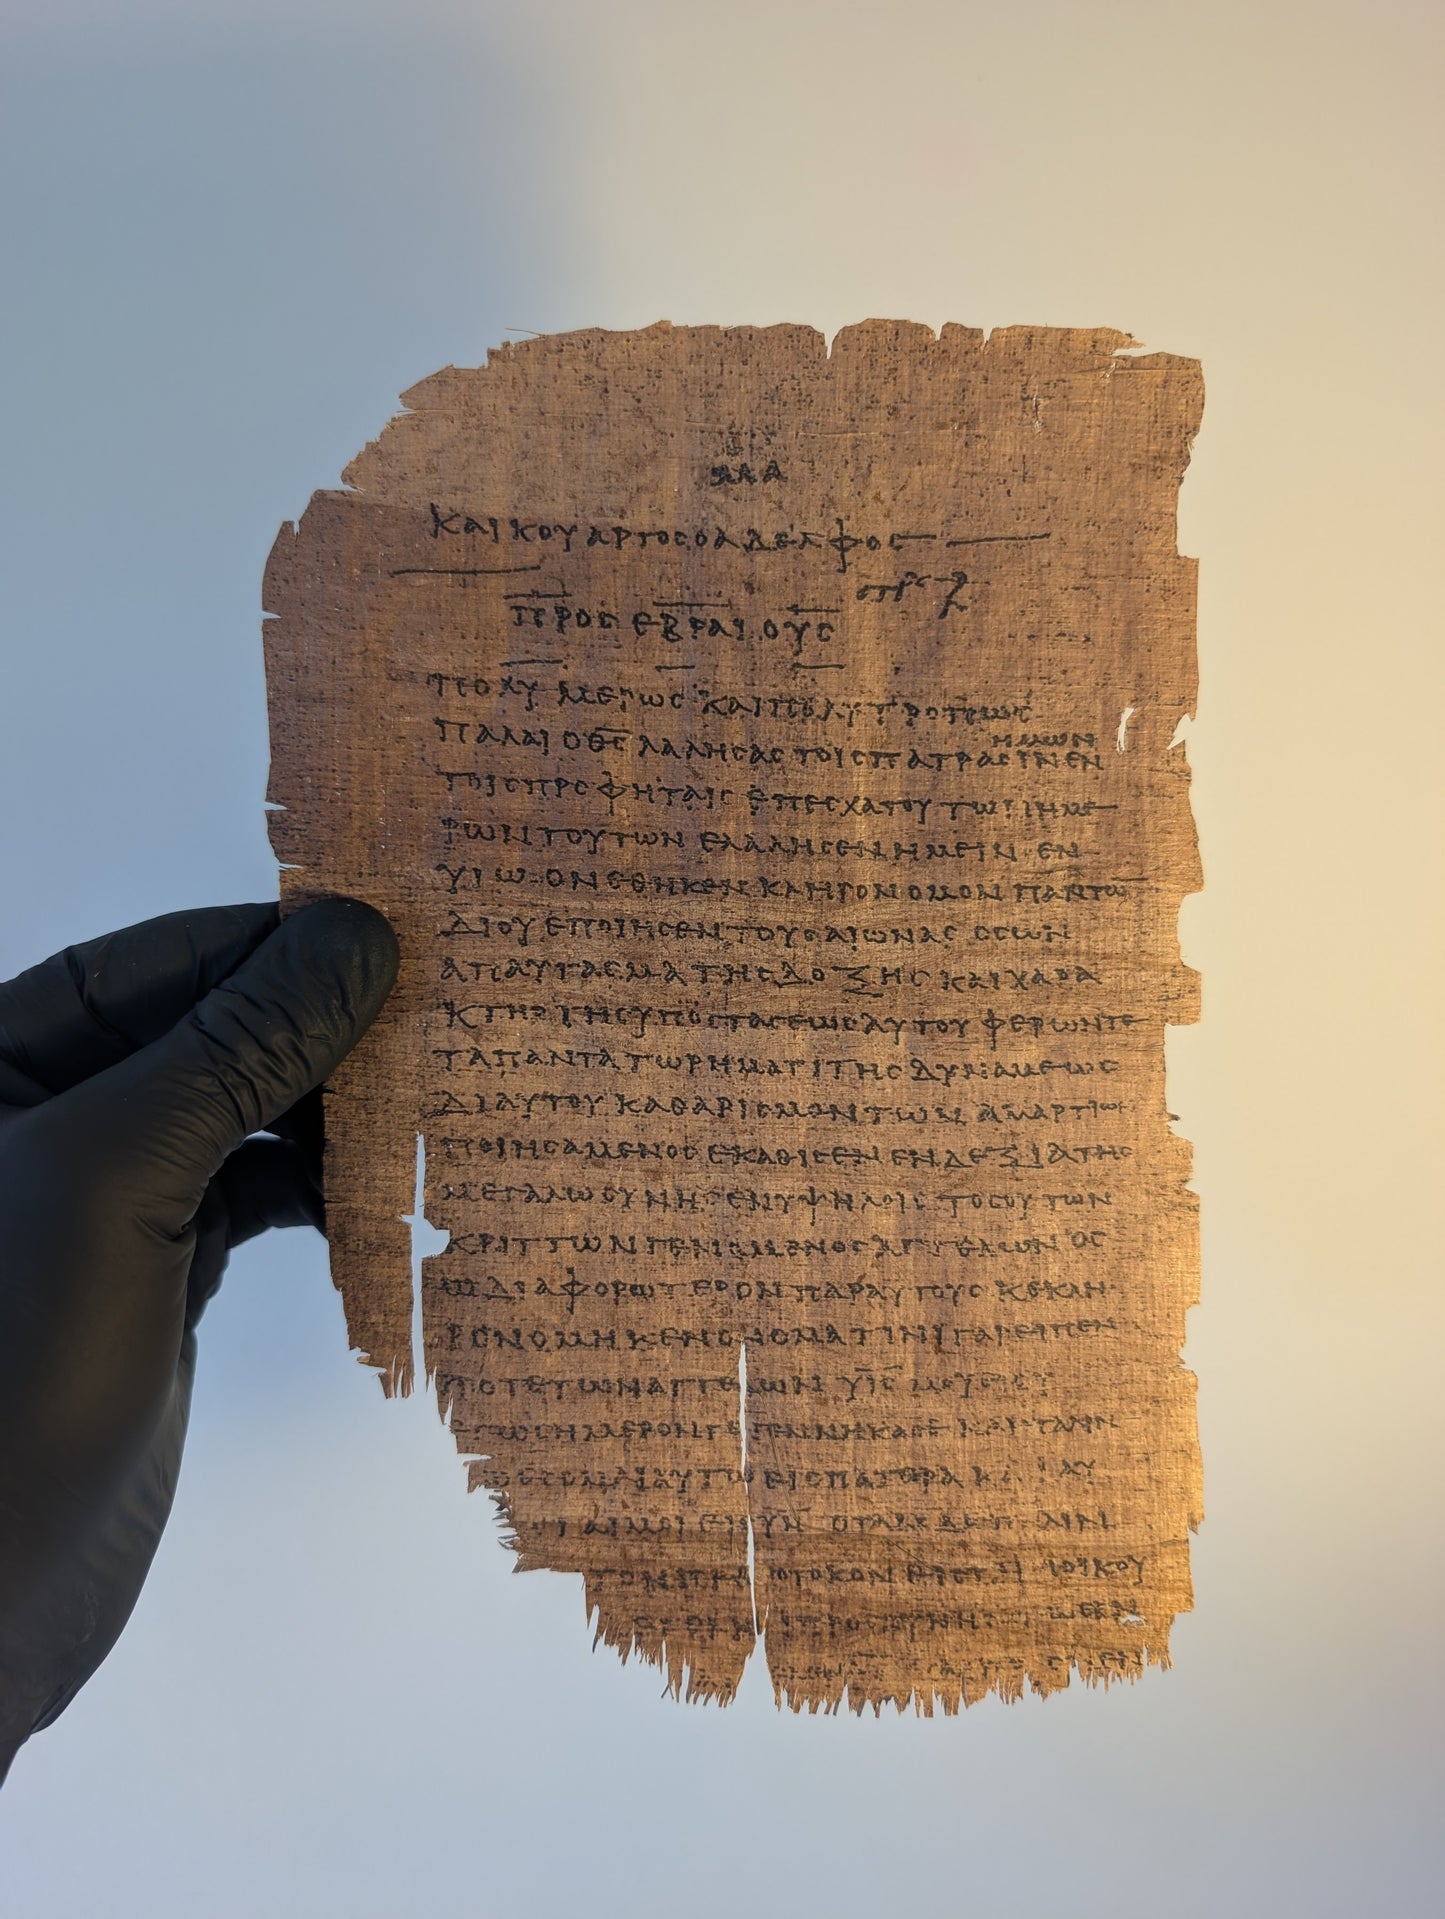 ΚΑΙ ΚΟΥΑΡΤΟϹ Ο ΑΔΕΛΦΟϹ
ΠΡΟϹ ΕΒΡΑΙΟΥϹ
ΚΑΙ ΠΟΛΥΤΡΟΠΩϹ
ΗΜΩΝ
ΠΑΛΑΙ Ο Θ̅Ϲ̅ ΛΑΛΗϹΑϹ ΤΟΙϹ ΠΑΤΡΑϹΙΝ ΕΝ
ΤΟΙϹ ΠΡΟΦΗΤΑΙϹ ΕΠ ΕϹΧΑΤΟΥ ΤΩΝ ΗΜΕ
ΡΩΝ ΤΟΥΤΩΝ ΕΛΑΛΗϹΕΝ ΗΜΕΙΝ ΕΝ
ΥΙΩ ΟΝ ΕΘΗΚΕΝ ΚΛΗΡΟΝΟΜΟΝ ΠΑΝΤΩ̅
ΔΙ ΟΥ ΕΠΟΙΗϹΕΝ ΤΟΥϹ ΑΙΩΝΑϹ ΟϹ ΩΝ
ΑΠΑΥΓΑϹΜΑ ΤΗϹ ΔΟΞΗϹ ΚΑΙ ΧΑΡΑ
ΚΤΗΡ ΤΗϹ ΥΠΟϹΤΑϹΕΩϹ ΑΥΤΟΥ ΦΕΡΩΝ ΤΕ
ΤΑ ΠΑΝΤΑ ΤΩ ΡΗΜΑΤΙ ΤΗϹ ΔΥΝΑΜΕΩϹ
ΔΙ ΑΥΤΟΥ ΚΑΘΑΡΙϹΜΟΝ ΤΩΝ ΑΜΑΡΤΙΩΝ
ΠΟΙΗϹΑΜΕΝΟϹ ΕΚΑΘΙϹΕΝ ΕΝ ΔΕΞΙΑ ΤΗϹ
ΜΕΓΑΛΩϹΥΝΗϹ ΕΝ ΥΨΗΛΟΙϹ ΤΟϹΟΥΤΩΝ
ΚΡΙΤΤΩΝ ΓΕΝΑΜΕΝΟϹ ΑΓΓΕΛΩΝ ΟϹ
Ω ΔΙΑΦΟΡΩΤΕΡΟΝ ΠΑΡ ΑΥΤΟΥϹ ΚΕΚΛΗ
ΡΟΝΟΜΗΚΕΝ ΟΝΟΜΑ ΤΙΝΙ ΓΑΡ ΕΙΠΕΝ
ΠΟΤΕ ΤΩΝ ΑΓΓΕΛΩΝ Υ̅Ι̅Ϲ̅ ΜΟΥ
ϹΗΜΕΡΟΝ ΓΕΓΕΝΝΗΚΑ ϹΕ ΚΑΙ ΠΑΛΙΝ
ΕϹΟΜΑΙ ΑΥΤΩ ΕΙϹ ΠΑΤΕΡΑ ΚΑΙ ΑΥ
ΜΟΙ ΕΙϹ Υ̅Ν̅ ΟΤΑΝ ΔΕ ΠΑΛΙΝ